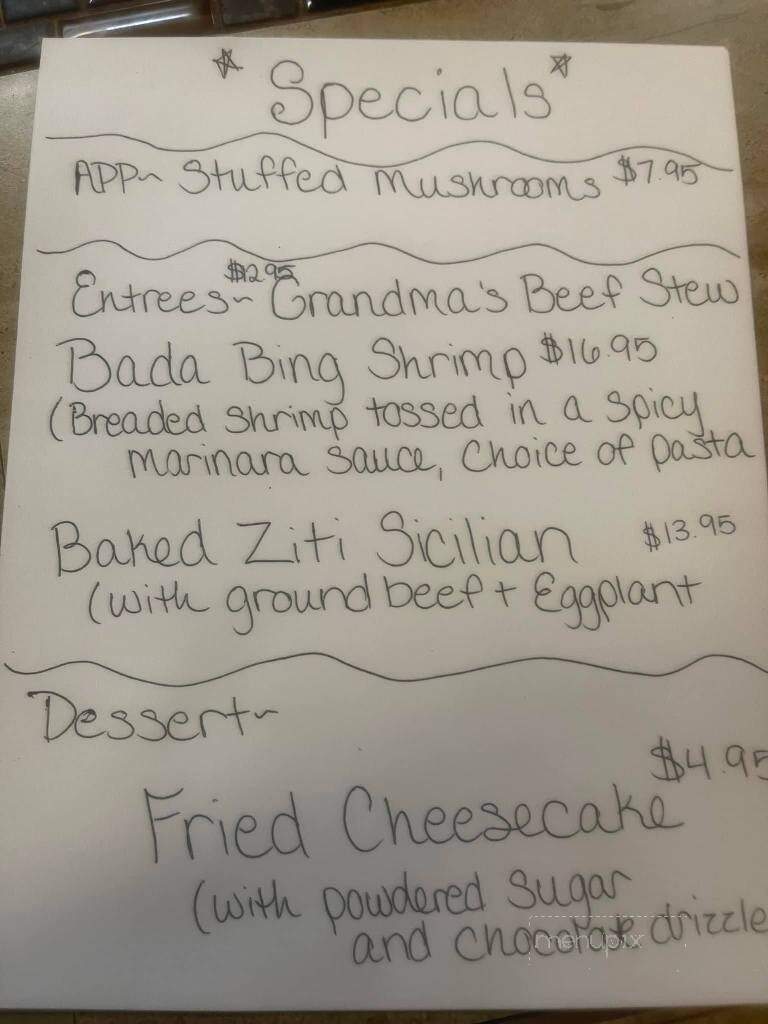 ☆ Specials ☆
APP~ Stuffed Mushrooms $7.95
$12.95
Entrees~ Grandma's Beef Stew
Bada Bing Shrimp $16.95
(Breaded shrimp tossed in a spicy
marinara sauce, choice of pasta
Baked Ziti Sicilian $13.95
(with ground beef + Eggplant
Dessert~
$4.95
Fried Cheesecake
(with powdered sugar
and chocolate drizzle
menupix